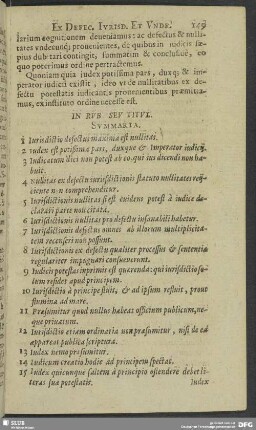 EX DEFEC. IVRISD. ET VNDE. 149
larium cognitionem deveniamus: ac defectus & nullitates
vndecunq; provenientes, de quibus in iudiciis sæpius
dubitari contingit, summatim & conclusivè, eo
quo poterimus ordine pertractemus.
Quoniam quia iudex potissima pars, dux q; & imperator
iudicii existit, ideo vt de nullitatibus ex defectu
potestatis iudicant. provenientibus præmittamus,
ex instituto ordine necesse est.
IN RVB. SEV TITVL.
SVMMARIA.
1 Iurisdictio defectus maxima est nullitas.
2 Iudex est potissima pars, duxque & Imperator iudicii.
3 Iudicatum dici non potest ab eo qui ius dicendi non habuit.
4 Nullitas ex defectu iurisdictionis statuto nullitates reijciente
non comprehenditur.
5 Iurisdictionis nullitas si est evidens potest à iudice declarari
parte non citata.
6 Iurisdictionis nullitas pro defectu insanabili habetur.
7 Iurisdictionis defectus omnes ob illorum multiplicitatem
recenseri non possunt.
8 Iurisdictionis ex defectu qualiter processus & sententia
regulariter impugnari consueverunt.
9 Iudicis potestas inprimis est quærenda: qui iurisdictio solum
resides apud principem.
10 Iurisdictio à principe fluit, & ad ipsum refluit, prout
flumina ad mare.
11 Præsumitur quod nullus habeat officium publicum, neque
privatum.
12 Iurisdictio etiam ordinaria non præsumitur, nisi de ea
appareat publica scriptura.
13 Iudex nemo præsumitur.
14 Iudicum creatio hodie ad principem spectat.
15 Iudex quicunque saltem à principio ostendere debet literas
suæ potestatis.
Iudex
SLUB
DFG